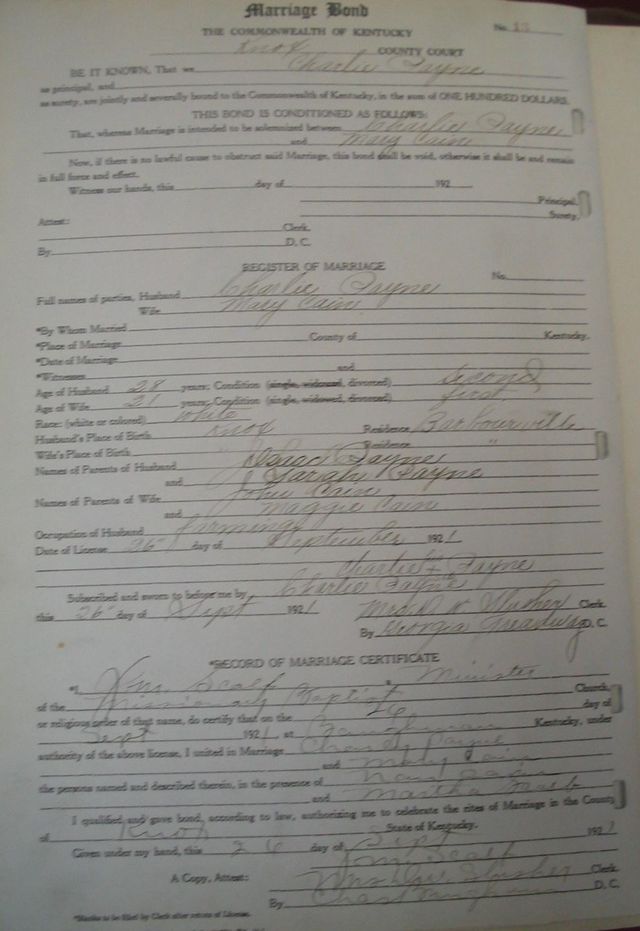 Marriage Bond
THE COMMONWEALTH OF KENTUCKY
No. 13
Knox COUNTY COURT
BE IT KNOWN, That we Charlie Payne
as principal, and
as surety, are jointly and severally bound to the Commonwealth of Kentucky, in the sum of ONE HUNDRED DOLLARS.
THIS BOND IS CONDITIONED AS FOLLOWS:
That, whereas Marriage is intended to be solemnized between Charlie Payne
and Mary Cain
Now, if there is no lawful cause to obstruct said Marriage, this bond shall be void, otherwise it shall be and remain
in full force and effect.
Witness our hands, this day of 192
Principal.
Surety.
Attest:
Clerk.
By D. C.
REGISTER OF MARRIAGE
No.
Full names of parties, Husband Charlie Payne
Wife Mary Cain
*By Whom Married
*Place of Marriage County of Kentucky.
*Date of Marriage
*Witnesses and
Age of Husband 28 years; Condition (single, widowed, divorced) second
Age of Wife 21 years; Condition (single, widowed, divorced) first
Race: (white or colored) white
Husband's Place of Birth Knox Residence Barbourville
Wife's Place of Birth " Residence "
Names of Parents of Husband Payne
and Sarah Payne
Names of Parents of Wife John Cain
and Maggie Cain
Occupation of Husband farming
Date of License 26 day of September 1921
Charlie + Payne
Subscribed and sworn to before me by Charlie Payne
this 26 day of Sept 1921 K. Slusher Clerk.
By Georgia Treadway D. C.
*RECORD OF MARRIAGE CERTIFICATE
*I, Wm. Scalf a Minister
of the Missionary Baptist Church,
or religious order of that name, do certify that on the 26 day of
Sept 1921, at Baughman Kentucky, under
authority of the above license, I united in Marriage Charley Payne
and Mary Cain
the persons named and described therein, in the presence of
and Martha Scalf
I qualified and gave bond, according to law, authorizing me to celebrate the rites of Marriage in the County
of Knox State of Kentucky.
Given under my hand, this 26 day of Sept 1921
Wm Scalf
A Copy, Attest: Mrs Slusher Clerk.
By D. C.
*Blanks to be filled by Clerk after return of License.